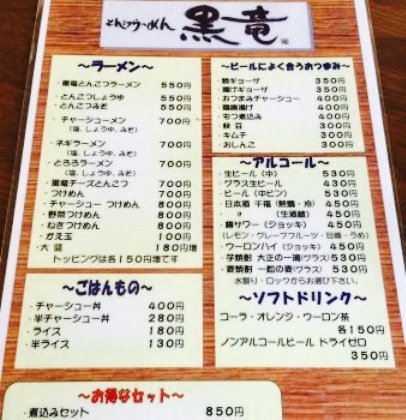 とんこつらーめん 黒竜
～ラーメン～
・黒竜とんこつラーメン 550円
・とんこつしょうゆ 550円
・とんこつみそ 550円
・チャーシューメン 700円
(塩、しょうゆ、みそ)
・ネギラーメン 700円
(塩、しょうゆ、みそ)
・とろろラーメン 700円
・黒竜チーズとんこつ
・つけめん 700円
・チャーシュー つけめん 800円
・野菜つけめん 800円
・ねぎつけめん 800円
・かえ玉 100円
・大 盛 180円増
トッピングは各150円増です
～ごはんもの～
・チャーシュー丼 400円
・半チャーシュー丼 280円
・ライス 180円
・半ライス 130円
～お得なセット～
・煮込みセット 850円
～ビールによく合うおつまみ～
・焼ギョーザ 350円
・揚げギョーザ 350円
・おつまみチャーシュー 400円
・もつ煮込み 400円
・枝豆 300円
・キムチ 300円
・おしんこ 300円
～アルコール～
・生ビール(中) 530円
・グラス生ビール 430円
・ビール(中ビン) 530円
・日本酒 千福(熱燗・冷) 450円
・ 〃 (生酒) 450円
・サワー(ジョッキ) 450円
(レモン・グレープフルーツ・巨峰・うめ)
・ウーロンハイ(ジョッキ) 450円
・芋焼酎 大正の一滴(グラス) 530円
・麦焼酎 一粒の麦(グラス) 530円
水割り・ロックからお選び下さい
～ソフトドリンク～
コーラ・オレンジ・ウーロン茶
各150円
ノンアルコールビール ドライゼロ
350円